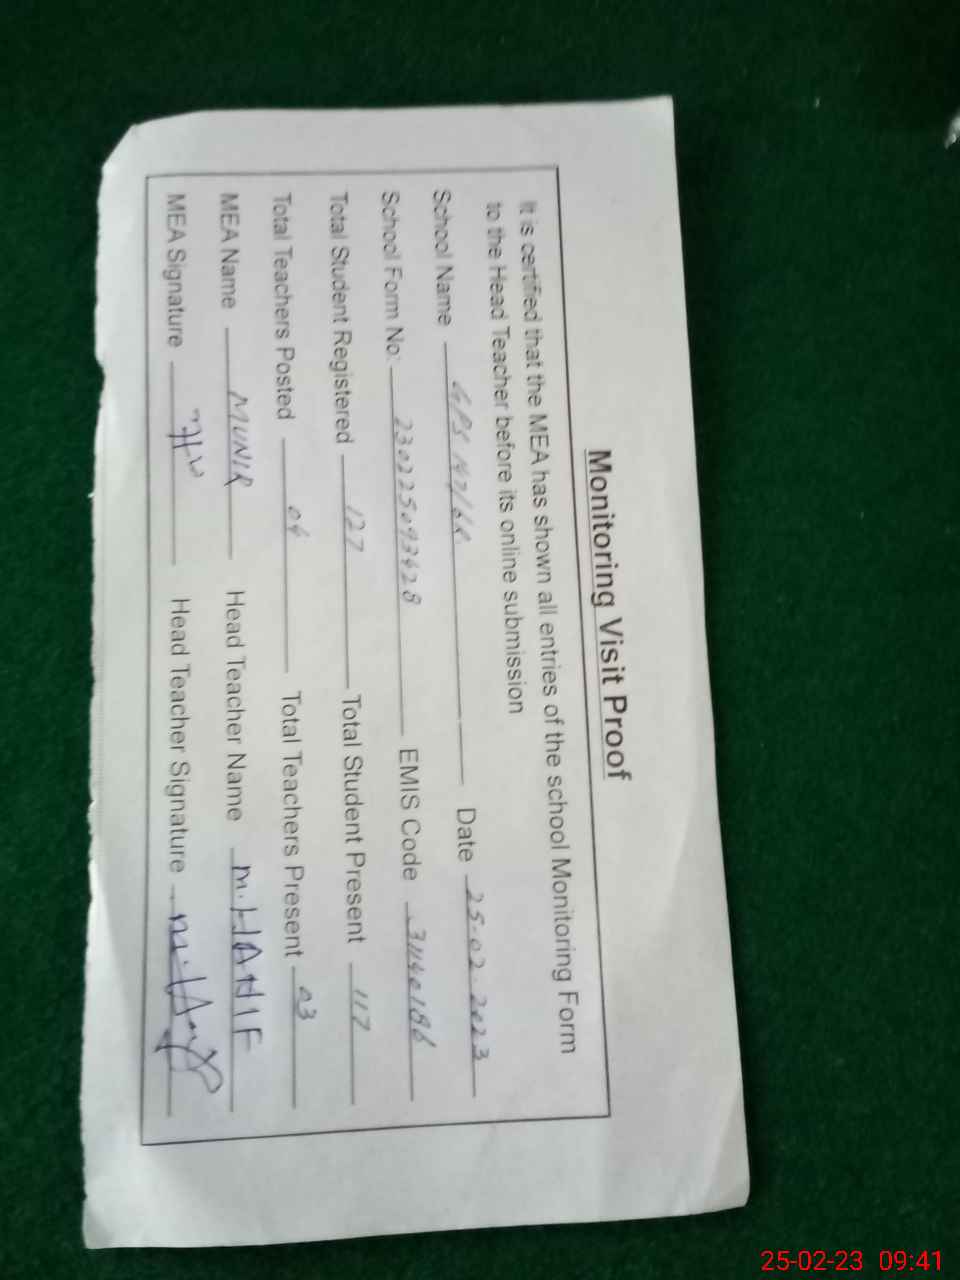 Monitoring Visit Proof
It is certified that the MEA has shown all entries of the school Monitoring Form
to the Head Teacher before its online submission
School Name GPS 147/6R Date 25.02.2023
School Form No: 230225093428 EMIS Code 31140186
Total Student Registered 127 Total Student Present 117
Total Teachers Posted 04 Total Teachers Present 03
MEA Name MUNIR Head Teacher Name M. HANIF
MEA Signature Head Teacher Signature
25-02-23 09:41